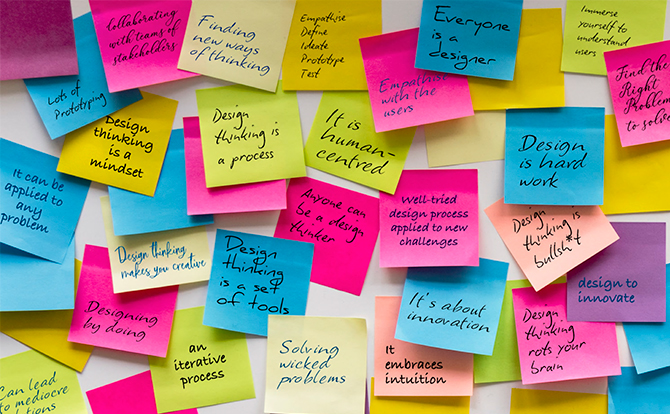 Collaborating
with teams of
stakeholders
Finding
new ways
of thinking
Empathise
Define
Ideate
Prototype
Test
Everyone
is a
designer
Immerse
yourself to
understand
users
Lots of
Prototyping
Empathise
with the
users
Find the
Right
Problem
to solve
Design
thinking
is a
mindset
Design
thinking is
a process
It is
human-
centred
Design
is hard
work
It can be
applied to
any
problem
Anyone can
be a design
thinker
Well-tried
design process
applied to new
challenges
Design
thinking is
bullsh*t
Design thinking
makes you creative
Design
thinking
is a set
of tools
design to
innovate
Designing
by doing
It's about
innovation
Design
thinking
rots your
brain
an
iterative
process
Solving
wicked
problems
It
embraces
intuition
Can lead
to mediocre